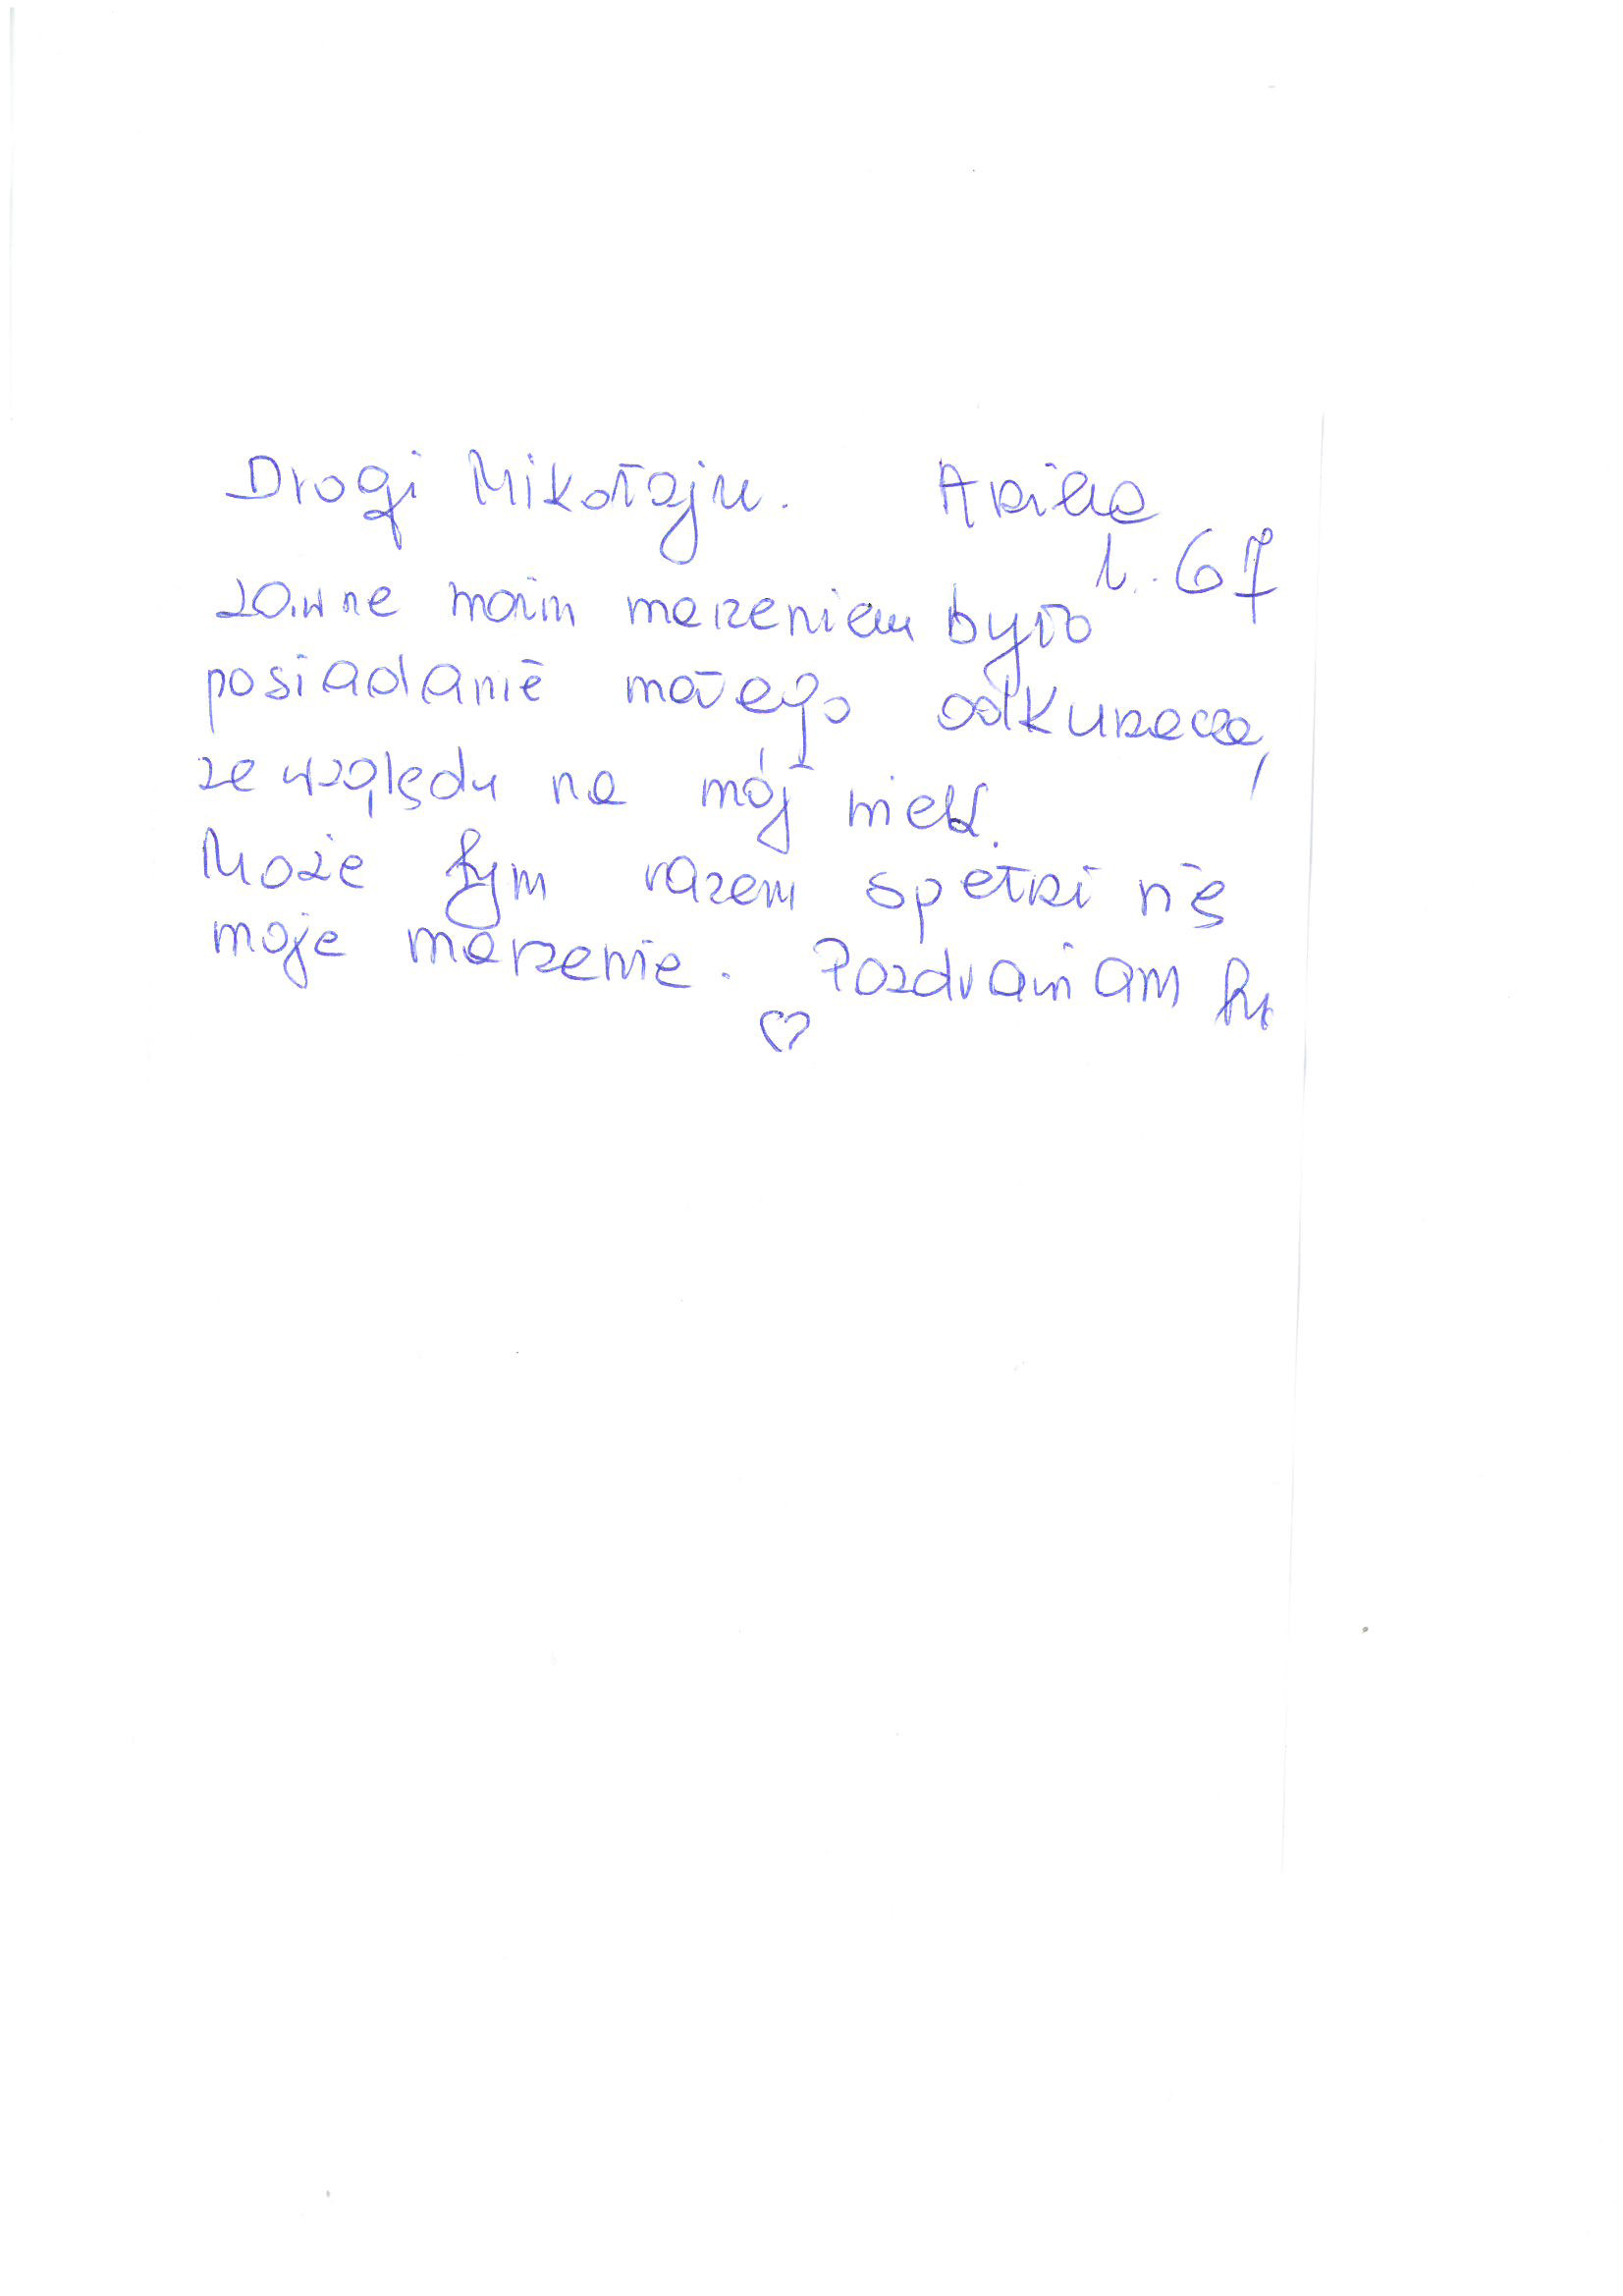 Drogi Mikołaju.
l. 67
zawsze moim marzeniem było
posiadanie małego odkurzacza,
ze względu na mój wiek.
Może tym razem spełni się
moje marzenie. Pozdrawiam
♡